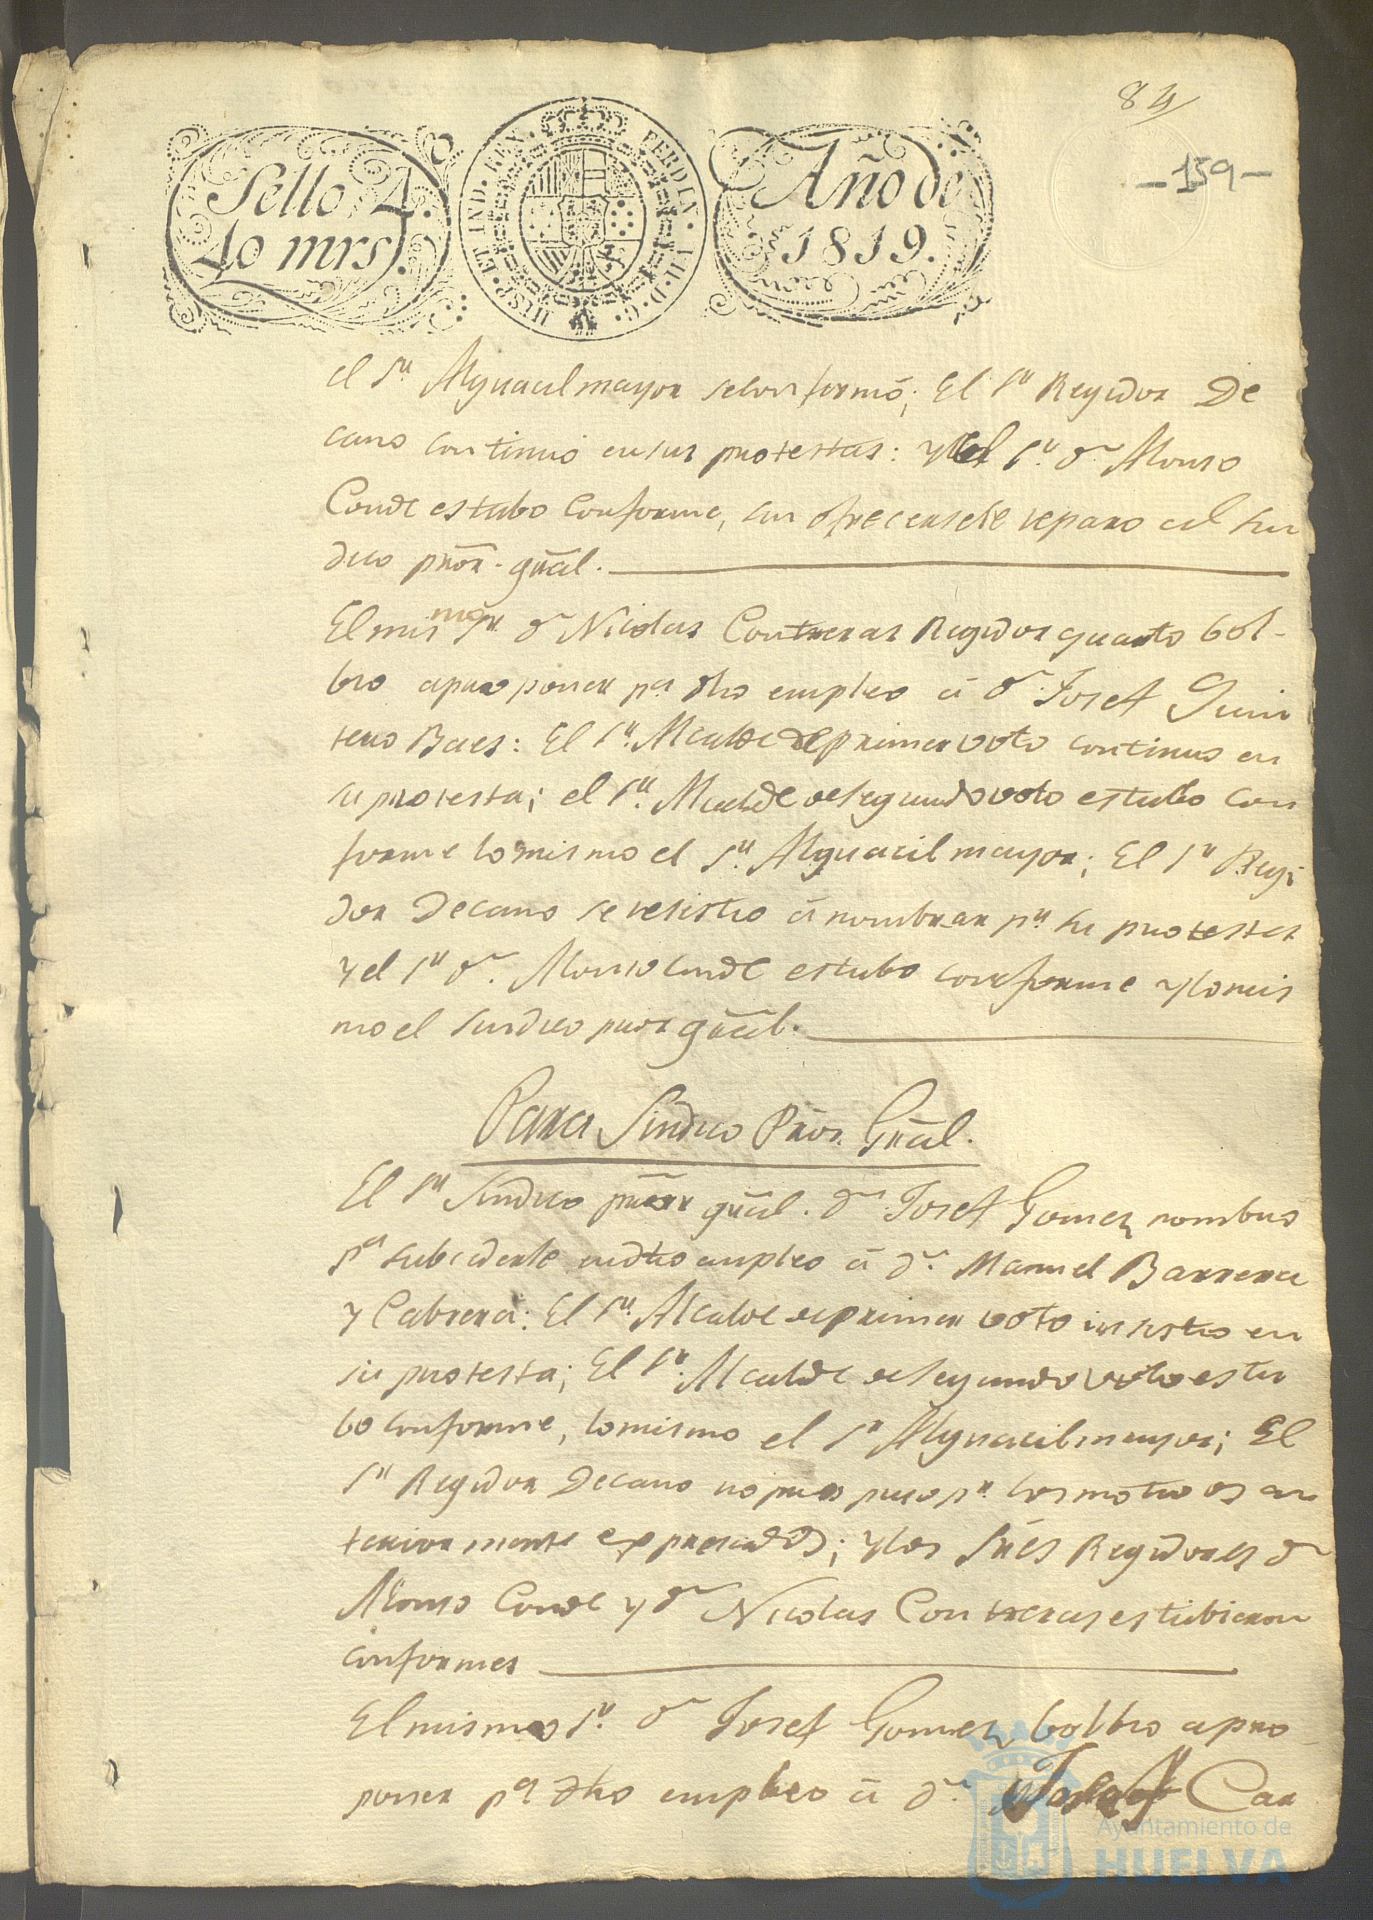 84
-159-
Sello 4.º
40 mrs.
HISP. ET IND. REX. FERDIN. VII. D. G.
Año de
1819.
el Sr. Alguacil mayor se conformó; El Sr Regidor De
cano continuó en sus protestas: y el Sr. Dn. Alonso
Conde estubo conforme, sin ofrecersele reparo al Sin
dico prōr. grāl.
El mismo Sr. Dn Nicolas Contreras Regidor quarto bol-
bio a proponer pa dho empleo á Dn. Josef Quin
tero Baes: El Sr. Alcalde de primer voto continuo en
su protesta; el Sr. Alcalde de segundo voto estubo con
forme lo mismo el Sr. Alguacil mayor; El Sr Regi
dor Decano se resistio á nombrar pr su protesta
y el Sr Dn. Alonso Conde estubo conforme y lo mis
mo el Sindico prōr grāl.
Para Sindico Prōr. Grāl.
El Sr Sindico prōr grāl. Dn Josef Gomez nombro
pa subcederle en dho empleo á Dn. Manuel Barrera
y Cabrera: El Sr. Alcalde de primer voto insistio en
su protesta; El Sr. Alcalde de segundo voto estu
bo conforme, lo mismo el Sr Alguacil mayor; El
Sr Regidor Decano no pr los motivos an
teriormente expresados; y los Srēs Regidores Dn
Alonso Conde y Dn Nicolas Contreras estubieron
conformes
El mismo Sr. Dn Josef Gomez bolbio a pro-
poner pa dho empleo á Dn. Josef Car
Ayuntamiento de
HUELVA